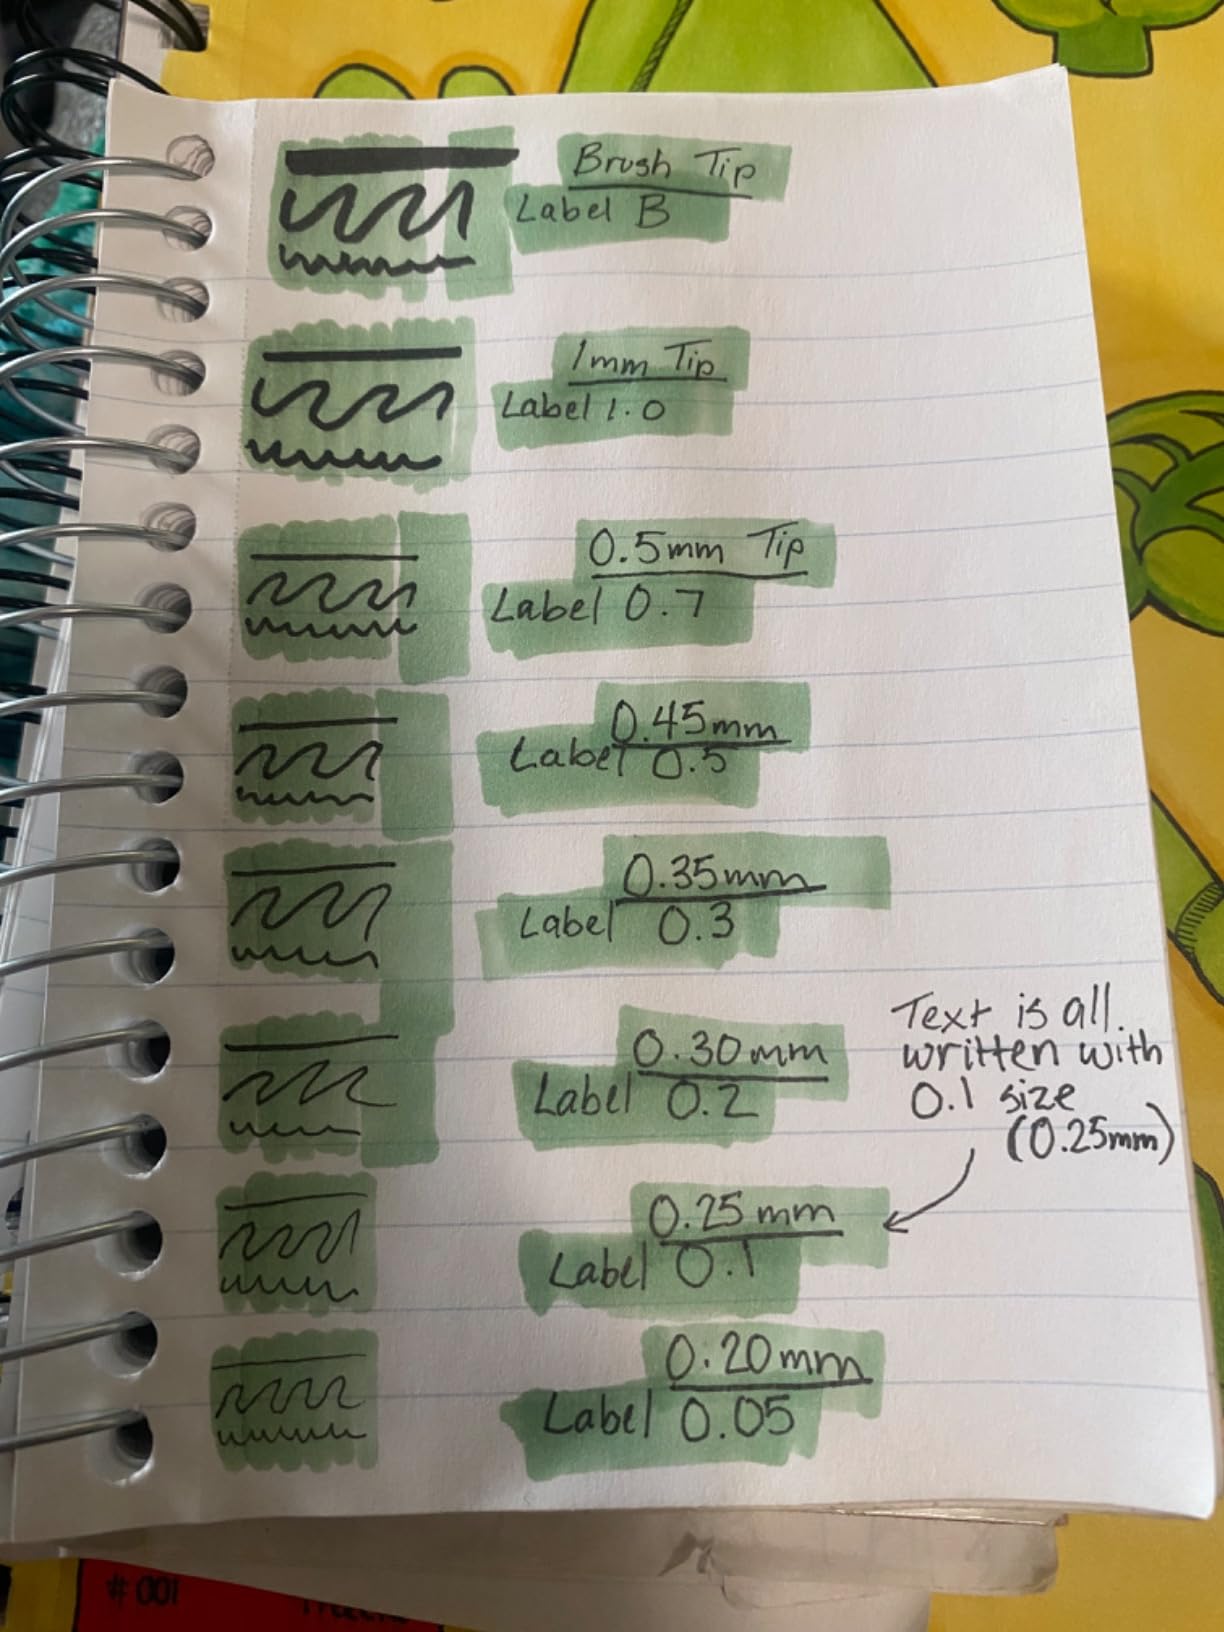 Brush Tip
Label B
1mm Tip
Label 1.0
0.5mm Tip
Label 0.7
0.45mm
Label 0.5
0.35mm
Label 0.3
Text is all
written with
0.1 size
(0.25mm)
0.30mm
Label 0.2
0.25mm
Label 0.1
0.20mm
Label 0.05
# 001